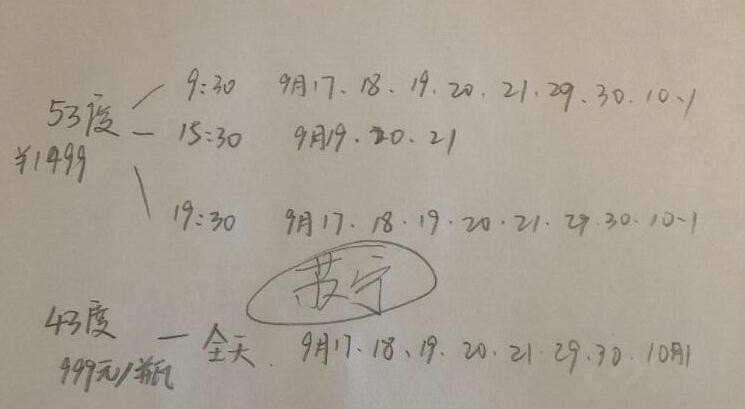 9:30 9月17、18、19、20、21、29、30、10、1
53度
¥1499
15:30 9月19、20、21
19:30 9月17、18、19、20、21、29、30、10、1
苏宁
43度
999元/瓶
全天、9月17、18、19、20、21、29、30、10月1